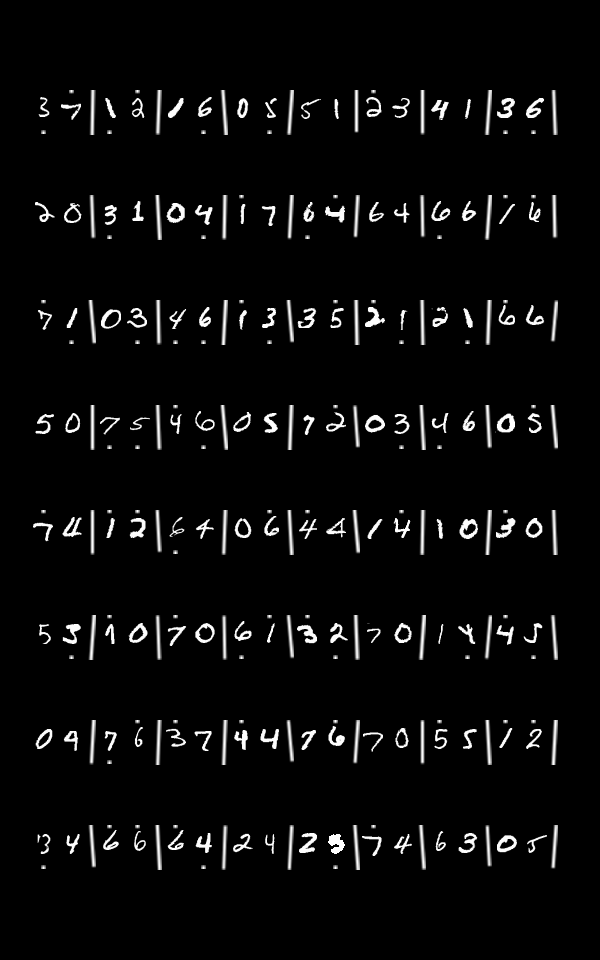 3 7 | 1 2 | 1 6 | 0 5 | 5 1 | 2 3 | 4 1 | 3 6 |
2 0 | 3 1 | 0 4 | 1 7 | 6 4 | 6 4 | 6 6 | 1 6 |
7 1 | 0 3 | 4 6 | 1 3 | 3 5 | 2 1 | 2 1 | 6 6 |
5 0 | 7 5 | 4 6 | 0 5 | 7 2 | 0 3 | 4 6 | 0 5 |
7 4 | 1 2 | 6 4 | 0 6 | 4 4 | 1 4 | 1 0 | 3 0 |
5 5 | 1 0 | 7 0 | 6 1 | 3 2 | 7 0 | 1 4 | 4 5 |
0 4 | 7 6 | 3 7 | 4 4 | 7 6 | 7 0 | 5 5 | 1 2 |
3 4 | 6 6 | 6 4 | 2 4 | 2 | 7 4 | 6 3 | 0 5 |